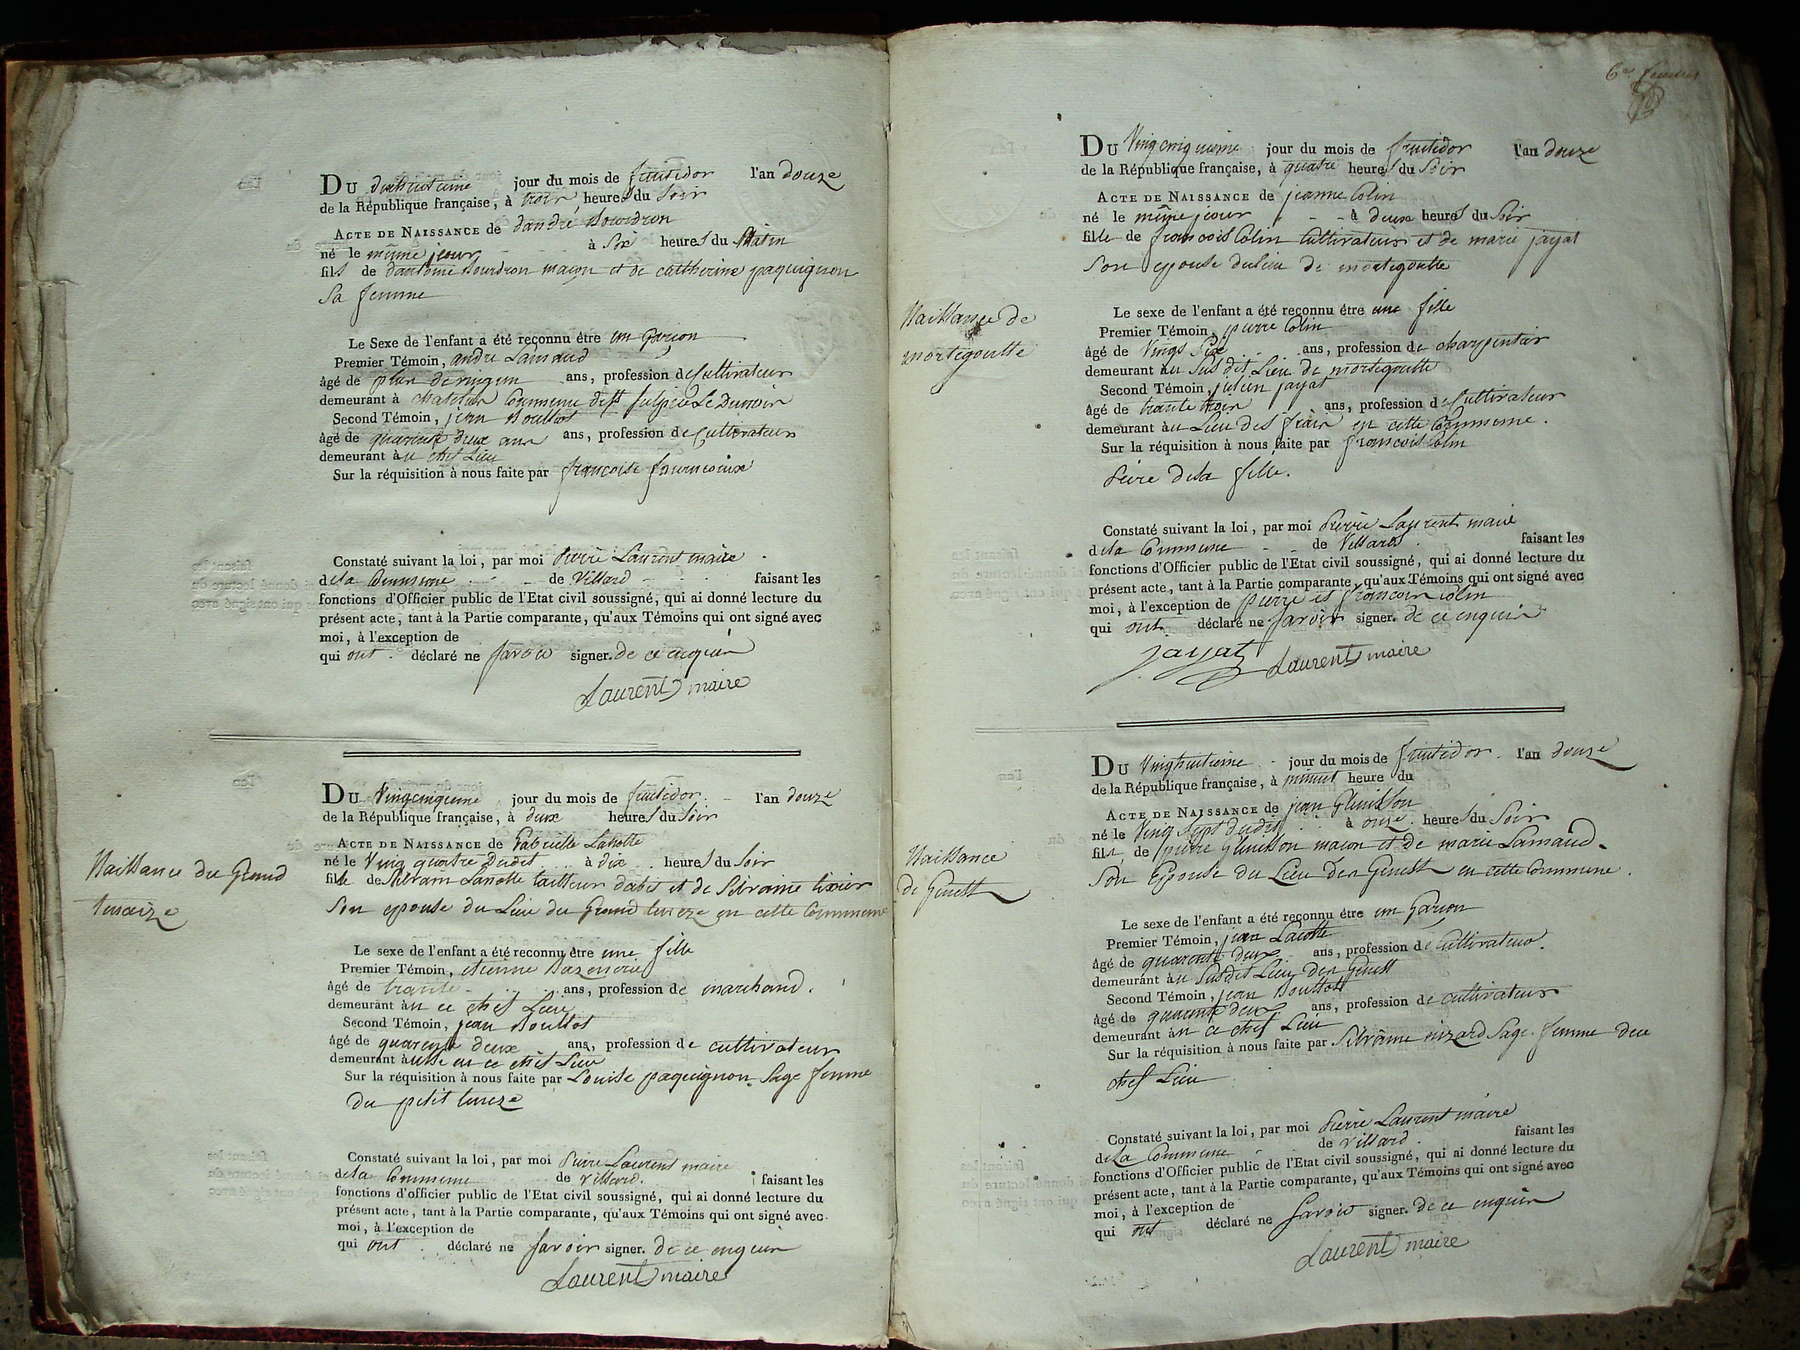 Du dixhuitieme jour du mois de fructidor l'an douze
de la République française, à trois heures du Soir
Acte de Naissance de dandré Bourdron
né le même jour à Six heures du Matin
fils de dantoine Bourdron maçon et de catherine paquignon
Sa femme
Le Sexe de l'enfant a été reconnu être un garçon
Premier Témoin, andré Lamaud
âgé de plus de ans, profession de Cultivateur
demeurant à Commune de St Sulpice Le Dunois
Second Témoin, jean Boullot
âgé de quarante deux ans ans, profession de Cultivateur
demeurant àu chef Lieu
Sur la réquisition à nous faite par françoise
Constaté suivant la loi, par moi Pierre Laurent maire
de la Commune de Villard faisant les
fonctions d'Officier public de l'Etat civil soussigné, qui ai donné lecture du
présent acte, tant à la Partie comparante, qu'aux Témoins qui ont signé avec
moi, à l'exception de
qui ont déclaré ne Savoir signer. de ce enquir
Laurent maire
Naissance du Grand
Teneize
Du Vingcinquieme jour du mois de fructidor l'an douze
de la République française, à deux heures du Soir
Acte de Naissance de Gabrielle Lanotte
né le Ving quatre Dudit à dix heures du Soir
fille de Silvain Lanotte tailleur dabis et de Silvaine tixier
Son epouse du Lieu du Grand teneze en cette Commune
Le sexe de l'enfant a été reconnu être une fille
Premier Témoin, etienne Bazenerie
âgé de trante ans, profession de marchand.
demeurant àn ce chef Lieu
Second Témoin, jean Boullot
âgé de quarente deux ans, profession de cultivateur
demeurant à en ce chef Lieu
Sur la réquisition à nous faite par Louise paquignon Sage femme
du petit teneze
Constaté suivant la loi, par moi Pierre Laurent maire
de la Commune de Villard. faisant les
fonctions d'officier public de l'Etat civil soussigné, qui ai donné lecture du
présent acte, tant à la Partie comparante, qu'aux Témoins qui ont signé avec
moi, à l'exception de
qui ont déclaré ne Savoir signer. de ce enquir
Laurent maire
Du Vingcinquieme jour du mois de fructidor l'an douze
de la République française, à quatre heures du Soir
Acte de Naissance de jeanne Colin
né le même jour à deux heures du Soir
fille de francois Colin Cultivateur et de marie jayat
Son epouse du lieu de mortegoutte
Naissance de
mortegoutte
Le sexe de l'enfant a été reconnu être une fille
Premier Témoin, pierre Colin
âgé de Vings Six ans, profession de charpentier
demeurant àu Susdit Lieu de mortegoutte
Second Témoin, julien jayat
âgé de trante trois ans, profession de Cultivateur
demeurant àu Lieu des frais en cette Commune.
Sur la réquisition à nous faite par francois Colin
Peire dela fille.
Constaté suivant la loi, par moi Pierre Laurent maire
dela Commune de Villards faisant les
fonctions d'Officier public de l'Etat civil soussigné, qui ai donné lecture du
présent acte, tant à la Partie comparante, qu'aux Témoins qui ont signé avec
moi, à l'exception de pierre et francois Colin
qui ont déclaré ne Savoir signer. de ce enquir
Jayat Laurent maire
Du Vinghuitieme jour du mois de fructidor l'an douze
de la République française, à minuit heure du
Acte de Naissance de jean Glenisson
né le Ving Sept dudit à onze heures du Soir
fils de pierre Glenisson maçon et de marie Lamaud.
Son Epouse du Lieu den Genest en cette Commune.
Naissance
de Genest
Le sexe de l'enfant a été reconnu être un Garçon
Premier Témoin, jean Lacotte
âgé de quarente deux ans, profession de Cultivateur.
demeurant àu Susdit Lieu den Genest
Second Témoin, jean Boullot
âgé de quarente deux ans, profession de cultivateur
demeurant àn ce chef Lieu
Sur la réquisition à nous faite par Silvaine nizard Sage femme deu
chef Lieu
Constaté suivant la loi, par moi Pierre Laurent maire
de La Commune de Villard. faisant les
fonctions d'Officier public de l'Etat civil soussigné, qui ai donné lecture du
présent acte, tant à la Partie comparante, qu'aux Témoins qui ont signé avec
moi, à l'exception de
qui ont déclaré ne Savoir signer. de ce enquir
Laurent maire